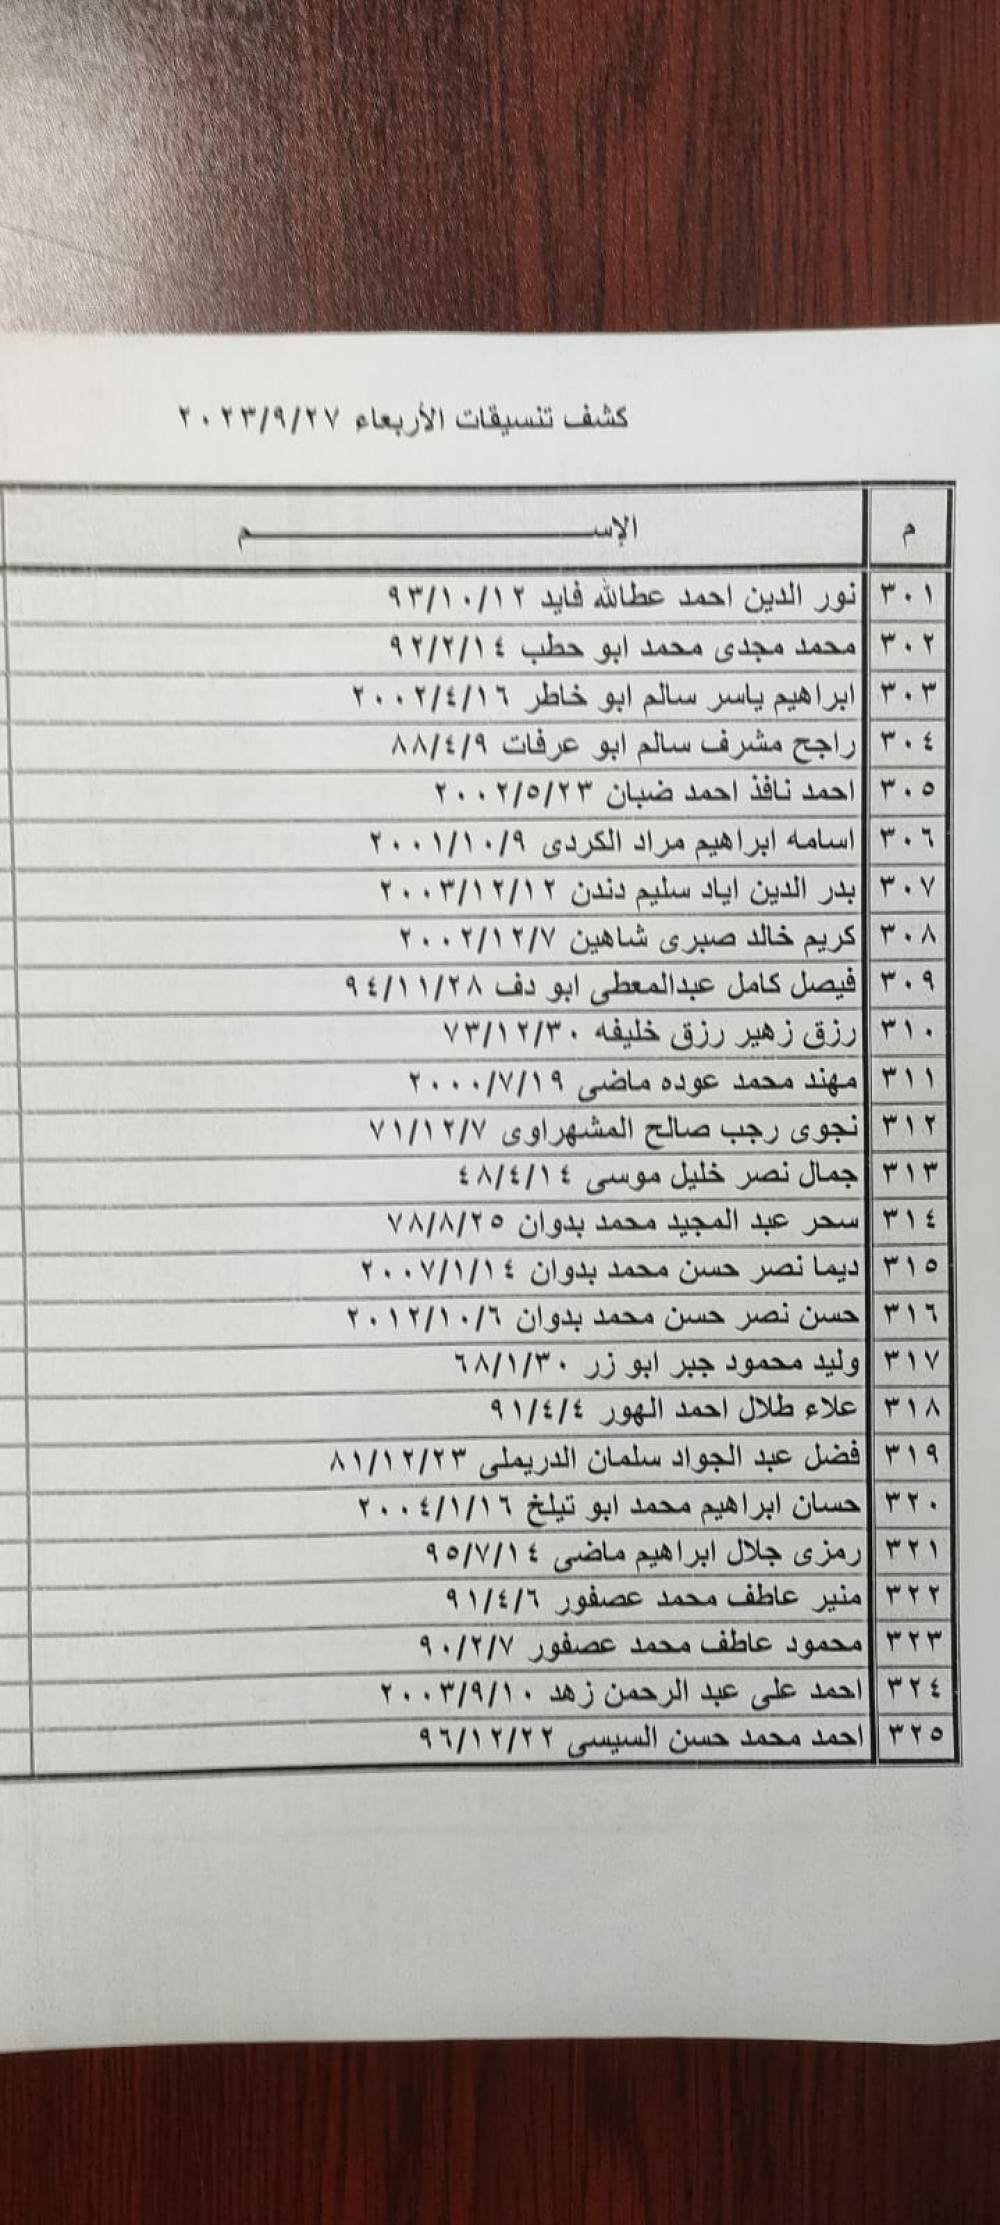 كشف تنسيقات الأربعاء ٢٠٢٣/٩/٢٧
م الإســـــــــــــــــــــــم
٣٠١ نور الدين احمد عطالله فايد ٩٣/١٠/١٢
٣٠٢ محمد مجدى محمد ابو حطب ٩٢/٢/١٤
٣٠٣ ابراهيم ياسر سالم ابو خاطر ٢٠٠٢/٤/١٦
٣٠٤ راجح مشرف سالم ابو عرفات ٨٨/٤/٩
٣٠٥ احمد نافذ احمد ضبان ٢٠٠٢/٥/٢٣
٣٠٦ اسامه ابراهيم مراد الكردى ٢٠٠١/١٠/٩
٣٠٧ بدر الدين اياد سليم دندن ٢٠٠٣/١٢/١٢
٣٠٨ كريم خالد صبرى شاهين ٢٠٠٢/١٢/٧
٣٠٩ فيصل كامل عبدالمعطى ابو دف ٩٤/١١/٢٨
٣١٠ رزق زهير رزق خليفه ٧٣/١٢/٣٠
٣١١ مهند محمد عوده ماضى ٢٠٠٠/٧/١٩
٣١٢ نجوى رجب صالح المشهراوى ٧١/١٢/٧
٣١٣ جمال نصر خليل موسى ٤٨/٤/١٤
٣١٤ سحر عبد المجيد محمد بدوان ٧٨/٨/٢٥
٣١٥ ديما نصر حسن محمد بدوان ٢٠٠٧/١/١٤
٣١٦ حسن نصر حسن محمد بدوان ٢٠١٢/١٠/٦
٣١٧ وليد محمود جبر ابو زر ٦٨/١/٣٠
٣١٨ علاء طلال احمد الهور ٩١/٤/٤
٣١٩ فضل عبد الجواد سلمان الدريملى ٨١/١٢/٢٣
٣٢٠ حسان ابراهيم محمد ابو تيلخ ٢٠٠٤/١/١٦
٣٢١ رمزى جلال ابراهيم ماضى ٩٥/٧/١٤
٣٢٢ منير عاطف محمد عصفور ٩١/٤/٦
٣٢٣ محمود عاطف محمد عصفور ٩٠/٢/٧
٣٢٤ احمد على عبد الرحمن زهد ٢٠٠٣/٩/١٠
٣٢٥ احمد محمد حسن السيسى ٩٦/١٢/٢٢